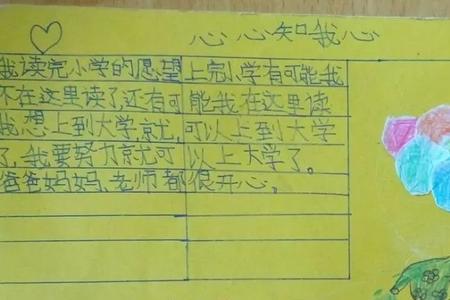 心心知我心
我读完小学的愿望上完小学有可能我
不在这里读了,还有可能我在这里读
我想上到大学.就,可以上到大学
了,我要努力就可以上大学了。
爸爸妈妈,老师都很开心。